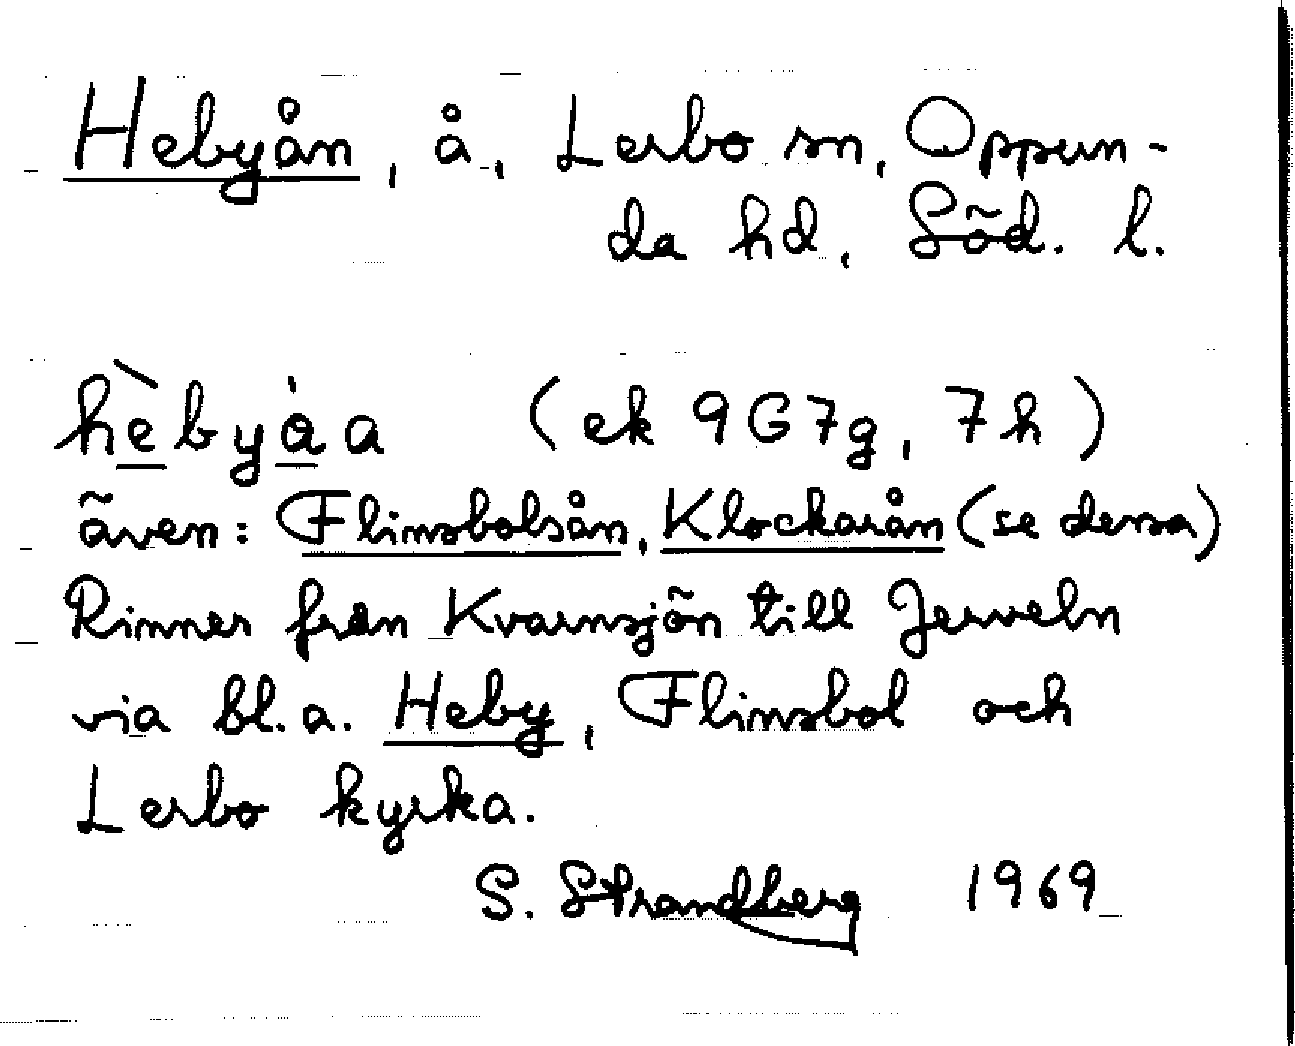 Hebyån, å, Lerbo sn, Oppun-
da hd, Söd. l.
hèbyåa (ek 9G7g, 7h)
även: Flinsbolsån, Klockarån (se dessa)
Rinner från Kvarnsjön till Jerveln
via bl.a. Heby, Flinsbol och
Lerbo kyrka.
S. Strandberg 1969